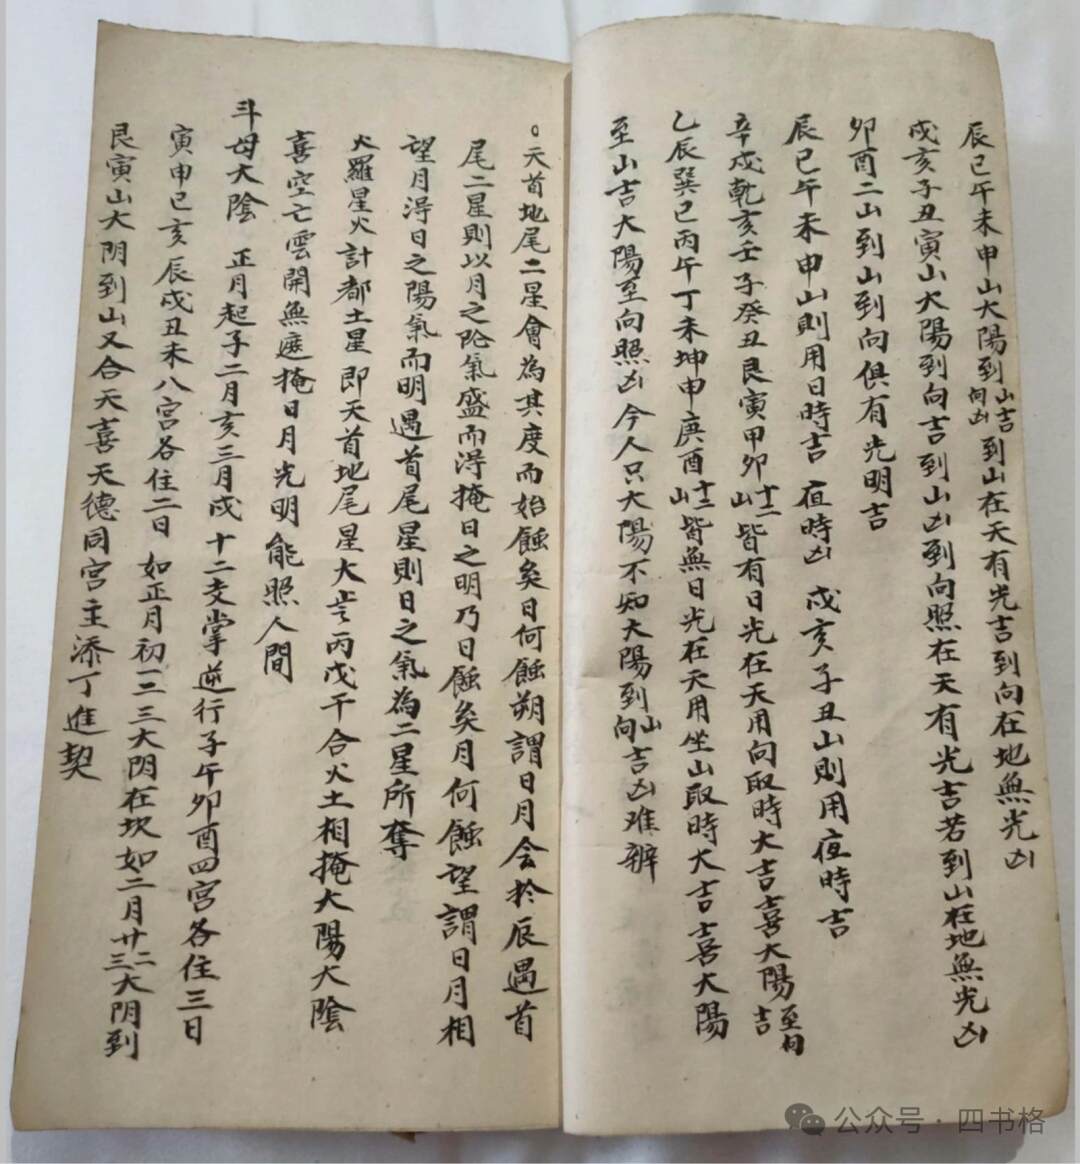 辰巳午未申山大陽到山吉向凶到山在天有光吉到向在地無光凶
戌亥子丑寅山大陽到向吉到山凶到向照在天有光吉若到山在地無光凶
卯酉二山到山到向俱有光明吉
辰巳午未申山則用日時吉夜時凶 戌亥子丑山則用夜時吉
辛戌乾亥壬子癸丑艮寅甲卯十二山皆有日光在天用向取時大吉喜大陽至向吉
乙辰巽巳丙午丁未坤申庚酉十二山皆無日光在天用坐山取時大吉喜大陽
至山吉大陽至向照凶今人只大陽不知大陽到山向吉凶难辨
○天首地尾二星會為其度而始蝕矣日何蝕朔謂日月会於辰遇首
尾二星則以月之阴氣盛而淂掩日之明乃日蝕矣月何蝕望謂日月相
望月淂日之陽氣而明遇首尾星則日之氣為二星所奪
火羅星火計都土星即天首地尾星大忌丙戊干合火土相掩大陽大陰
喜空亡雲開無遮掩日月光明能照人間
斗母大陰 正月起子二月亥三月戌十二支掌逆行子午卯酉四宮各住三日
寅申巳亥辰戌丑未八宮各住二日 如正月初一二三大阴在坎如二月廿二三大阴到
艮寅山大阴到山又合天喜天德同宮主添丁進契
公众号·四书格